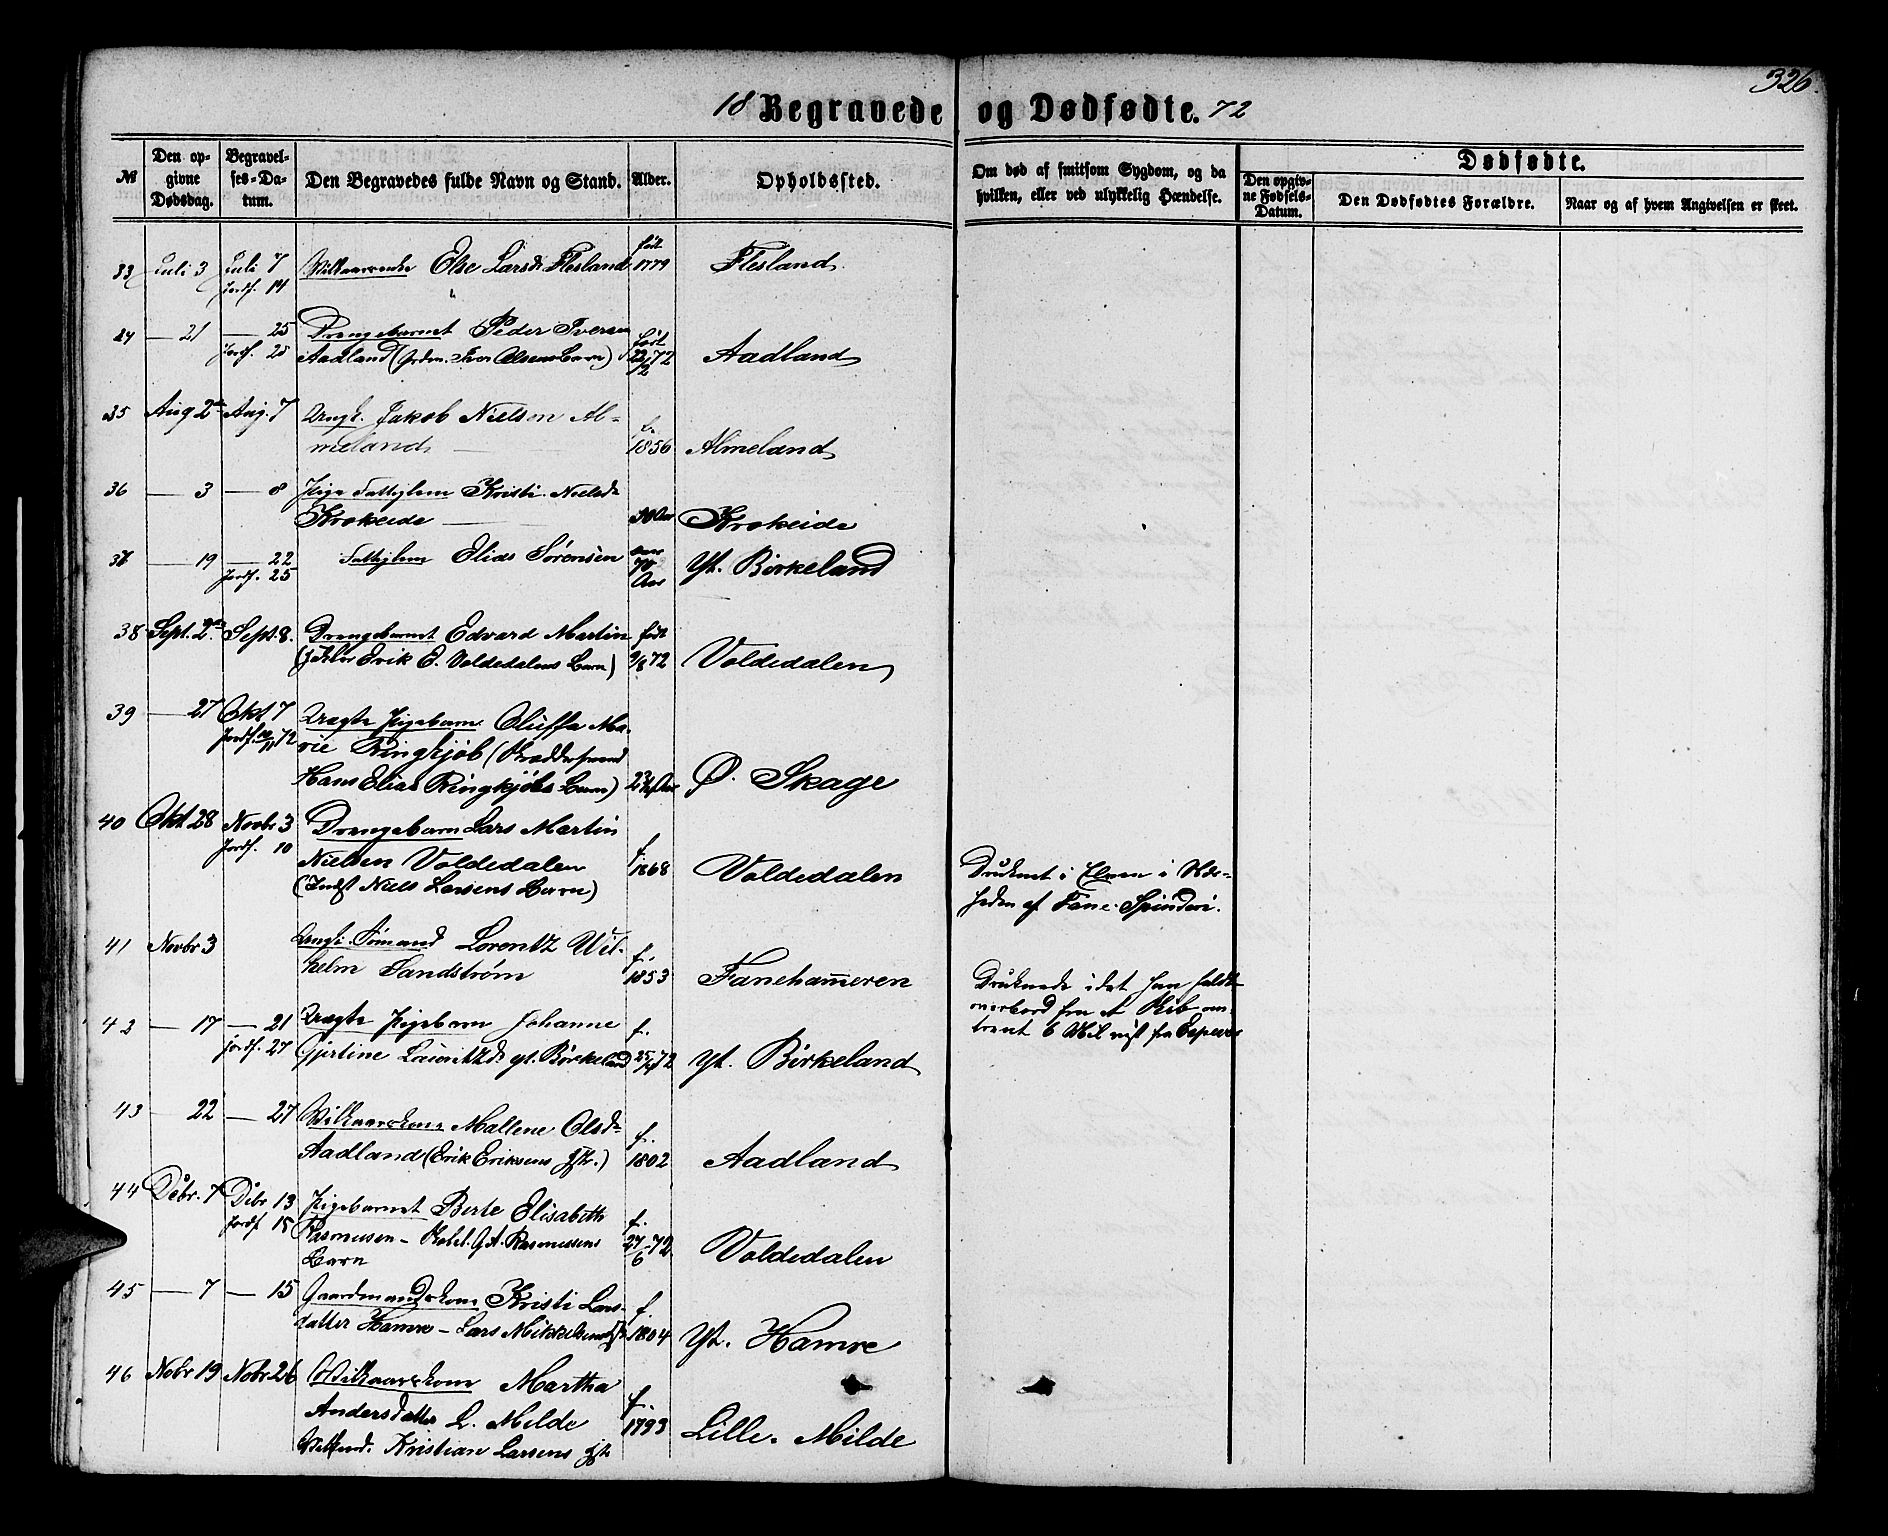 326.
18 Begravede og Dødfødte. 72
№
Den opgivne Dødsdag.
Begravelses-Datum.
Den Begravedes fulde Navn og Stand.
Alder.
Opholdssted.
Om død af smitsom Sygdom, og da hvilken, eller ved ulykkelig Hændelse.
Dødfødte.
Den opgivne Fødsels-Datum.
Den Dødfødtes Forældre.
Naar og af hvem Angivelsen er skeet.
33 Juli 3 Juli 7 Else Larsd. Flesland født 1779 Flesland
Jordf. 14
34 — 21 — 25 Drengebarnet Peder Iversen født
Jordf. 28 Aadland (Iver Olsens Barn) 72 Aadland
35 Aug 2den Aug. 7 Ungk. Jakob Nielsen Al- f.
meland 1856 Almeland
36 — 3 — 8 Pige Fattiglem Kristi Nielsd.
Krokeide — Aar Krokeide
37 — 19 — 22 Fattiglem Elias Sørensen 70 Aar Yt. Birkeland
Jordf. 25
38 Sept. 2den Sept. 8. Drengebarnet Edvard Martin født
(Erik E. Voldedalens Barn) 9/8 72 Voldedalen
39 — 27 Okt 7 Uægte Pigebarn Oluffa Ma-
Jordf. 72 rie Ringkjøb (
Hans Elias Ringkjøbs Barn) Aar Ø. Skage
40 Okt 28 Novbr 3 Drengebarn Lars Martin
Jordf. 10 Nielsen Voldedalen f. 1868 Voldedalen Druknet i Elven i Nær-
(Inds Niels Larsens Barn) heden af Fane Spinderi.
41 Novbr 3 Ungk. Sømand Lorentz Wil-
helm Sandstrøm f. 1853 Fanehammeren Druknede idet han faldt
overbord fra et Skib om-
trent 6 Mil vest fra
42 — 17 — 21 Uægte Pigebarn Johanne f.
Jordf. 27 Gjertine Lauritzd. yt. Birkeland 72 yt. Birkeland
43 — 22 — 27 Vilkaarskone Mallene Olsd. f.
Aadland (Erik Eriksens Hstr.) 1802 Aadland
44 Debr. 7 Debr 13 Pigebarnet Berte Elisabeth f.
Jordf. 15 Rasmusen – Rasmussens 27/6 72 Voldedalen
Barn
45 — 7 — 15 Gaardmandskone Kristi Lars- f.
datter Hamre – Lars Mikkelsens 1804 Yt. Hamre
46 Nobr 19 Nobr 26 Vilkaarskone Martha f.
Andersdatter L. Milde 1793 Lille Milde
Kristian Larsens Hstr